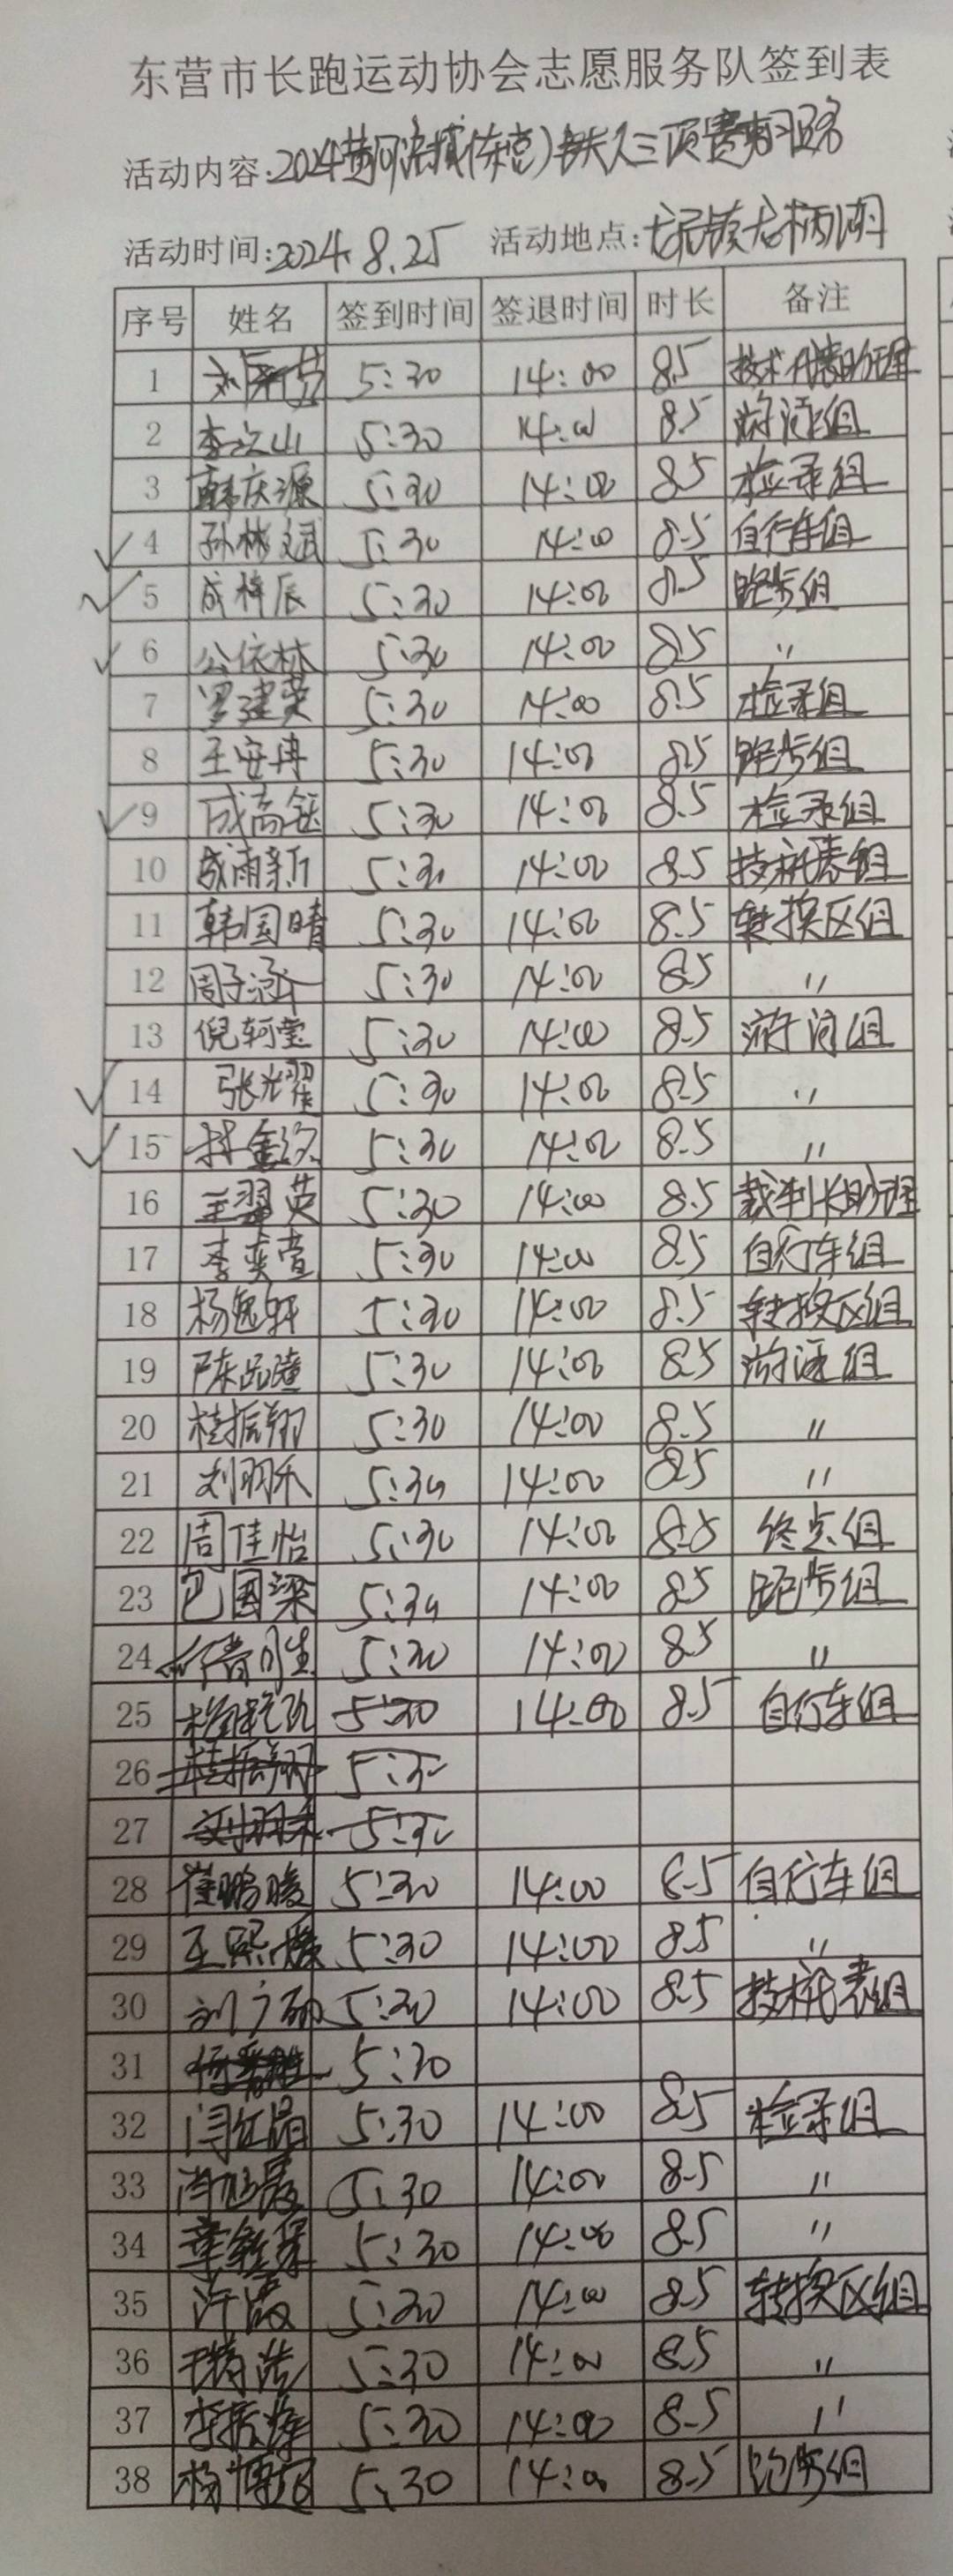 东营市长跑运动协会志愿服务队签到表
活动内容:2024黄河流域(东营)铁人三项赛
活动时间:2024.8.25 活动地点:龙居镇龙栖湖
序号 姓名 签到时间 签退时间 时长 备注
1 5:30 14:00 8.5 技术代表助理
2 李次山 5:30 14:00 8.5 游泳组
3 韩庆源 5:30 14:00 8.5 检录组
4 孙彬斌 5:30 14:00 8.5 自行车组
5 成梓辰 5:30 14:00 8.5 跑步组
6 公依林 5:30 14:00 8.5 〃
7 罗建英 5:30 14:00 8.5 检录组
8 王安冉 5:30 14:00 8.5 跑步组
9 成高钰 5:30 14:00 8.5 检录组
10 成雨新 5:30 14:00 8.5 技术代表组
11 韩国晴 5:30 14:00 8.5 转换区组
12 周子涵 5:30 14:00 8.5 〃
13 倪轲莹 5:30 14:00 8.5 游泳组
14 张光耀 5:30 14:00 8.5 〃
15 5:30 14:00 8.5 〃
16 王翠英 5:30 14:00 8.5 裁判长助理
17 李奕萱 5:30 14:00 8.5 自行车组
18 杨逸轩 5:30 14:00 8.5 转换区组
19 陈品瞳 5:30 14:00 8.5 游泳组
20 桂振翔 5:30 14:00 8.5 〃
21 刘羽禾 5:30 14:00 8.5 〃
22 周佳怡 5:30 14:00 8.5 终点组
23 包国梁 5:30 14:00 8.5 跑步组
24 5:30 14:00 8.5 〃
25 5:30 14:00 8.5 自行车组
26 桂振翔 5:30
27 刘羽禾 5:30
28 崔鹏暖 5:30 14:00 8.5 自行车组
29 王熙媛 5:30 14:00 8.5 〃
30 5:30 14:00 8.5 技术代表组
31 5:30
32 闫红晶 5:30 14:00 8.5 检录组
33 尚旭晨 5:30 14:00 8.5 〃
34 5:30 14:00 8.5 〃
35 许潆 5:30 14:00 8.5 转换区组
36 5:30 14:00 8.5 〃
37 李振烽 5:30 14:00 8.5 〃
38 杨博超 5:30 14:00 8.5 跑步组